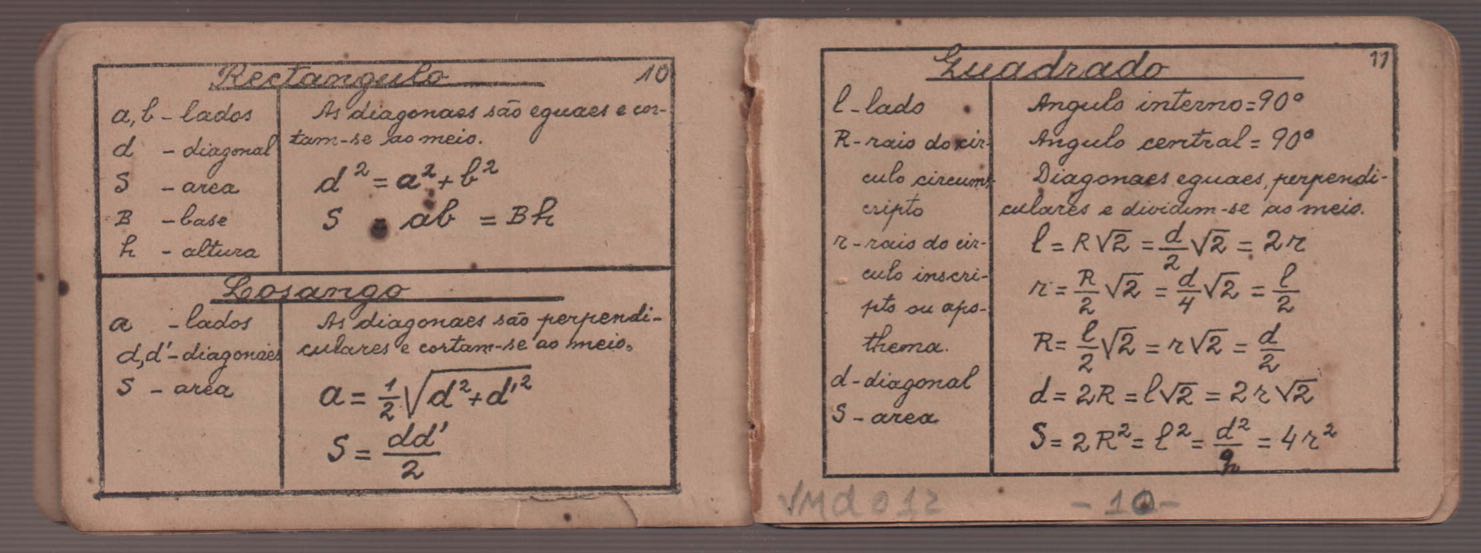 Rectangulo 10
a, b - lados
d - diagonal
S - area
B - base
h - altura
As diagonaes são eguaes e cor-
tam-se ao meio.
d² = a² + b²
S = ab = Bh
Losango
a - lados
d, d' - diagonaes
S - area
As diagonaes são perpendi-
culares e cortam-se ao meio.
a = 1/2 √(d² + d'²)
S = dd'/2
Quadrado 11
l - lado
R - raio do cir-
culo circums-
cripto
r - raio do cir-
culo inscri-
pto ou apo-
thema.
d - diagonal
S - area
Angulo interno = 90°
Angulo central = 90°
Diagonaes eguaes, perpendi-
culares e dividem-se ao meio.
l = R√2 = d/2 √2 = 2r
r = R/2 √2 = d/4 √2 = l/2
R = l/2 √2 = r√2 = d/2
d = 2R = l√2 = 2r√2
S = 2R² = l² = d²/2 = 4r²
- 10 -